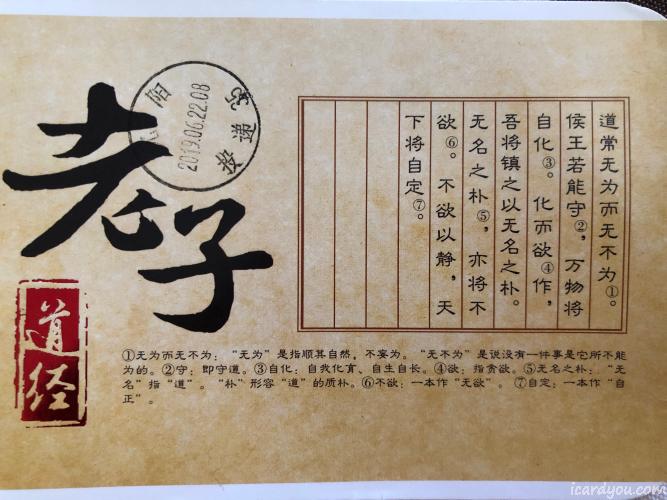 老子
道经
阳
2019.06.22.08
投递
道常无为而无不为①。
侯王若能守②，万物将
自化③。化而欲④作，
吾将镇之以无名之朴。
无名之朴⑤，亦将不
欲⑥。不欲以静，天
下将自定⑦。
①无为而无不为：“无为”是指顺其自然，不妄为。“无不为”是说没有一件事是它所不能
为的。②守：即守道。③自化：自我化育、自生自长。④欲：指贪欲。⑤无名之朴：“无
名”指“道”。“朴”形容“道”的质朴。⑥不欲：一本作“无欲”。⑦自定：一本作“自
正”。
icardyou.com